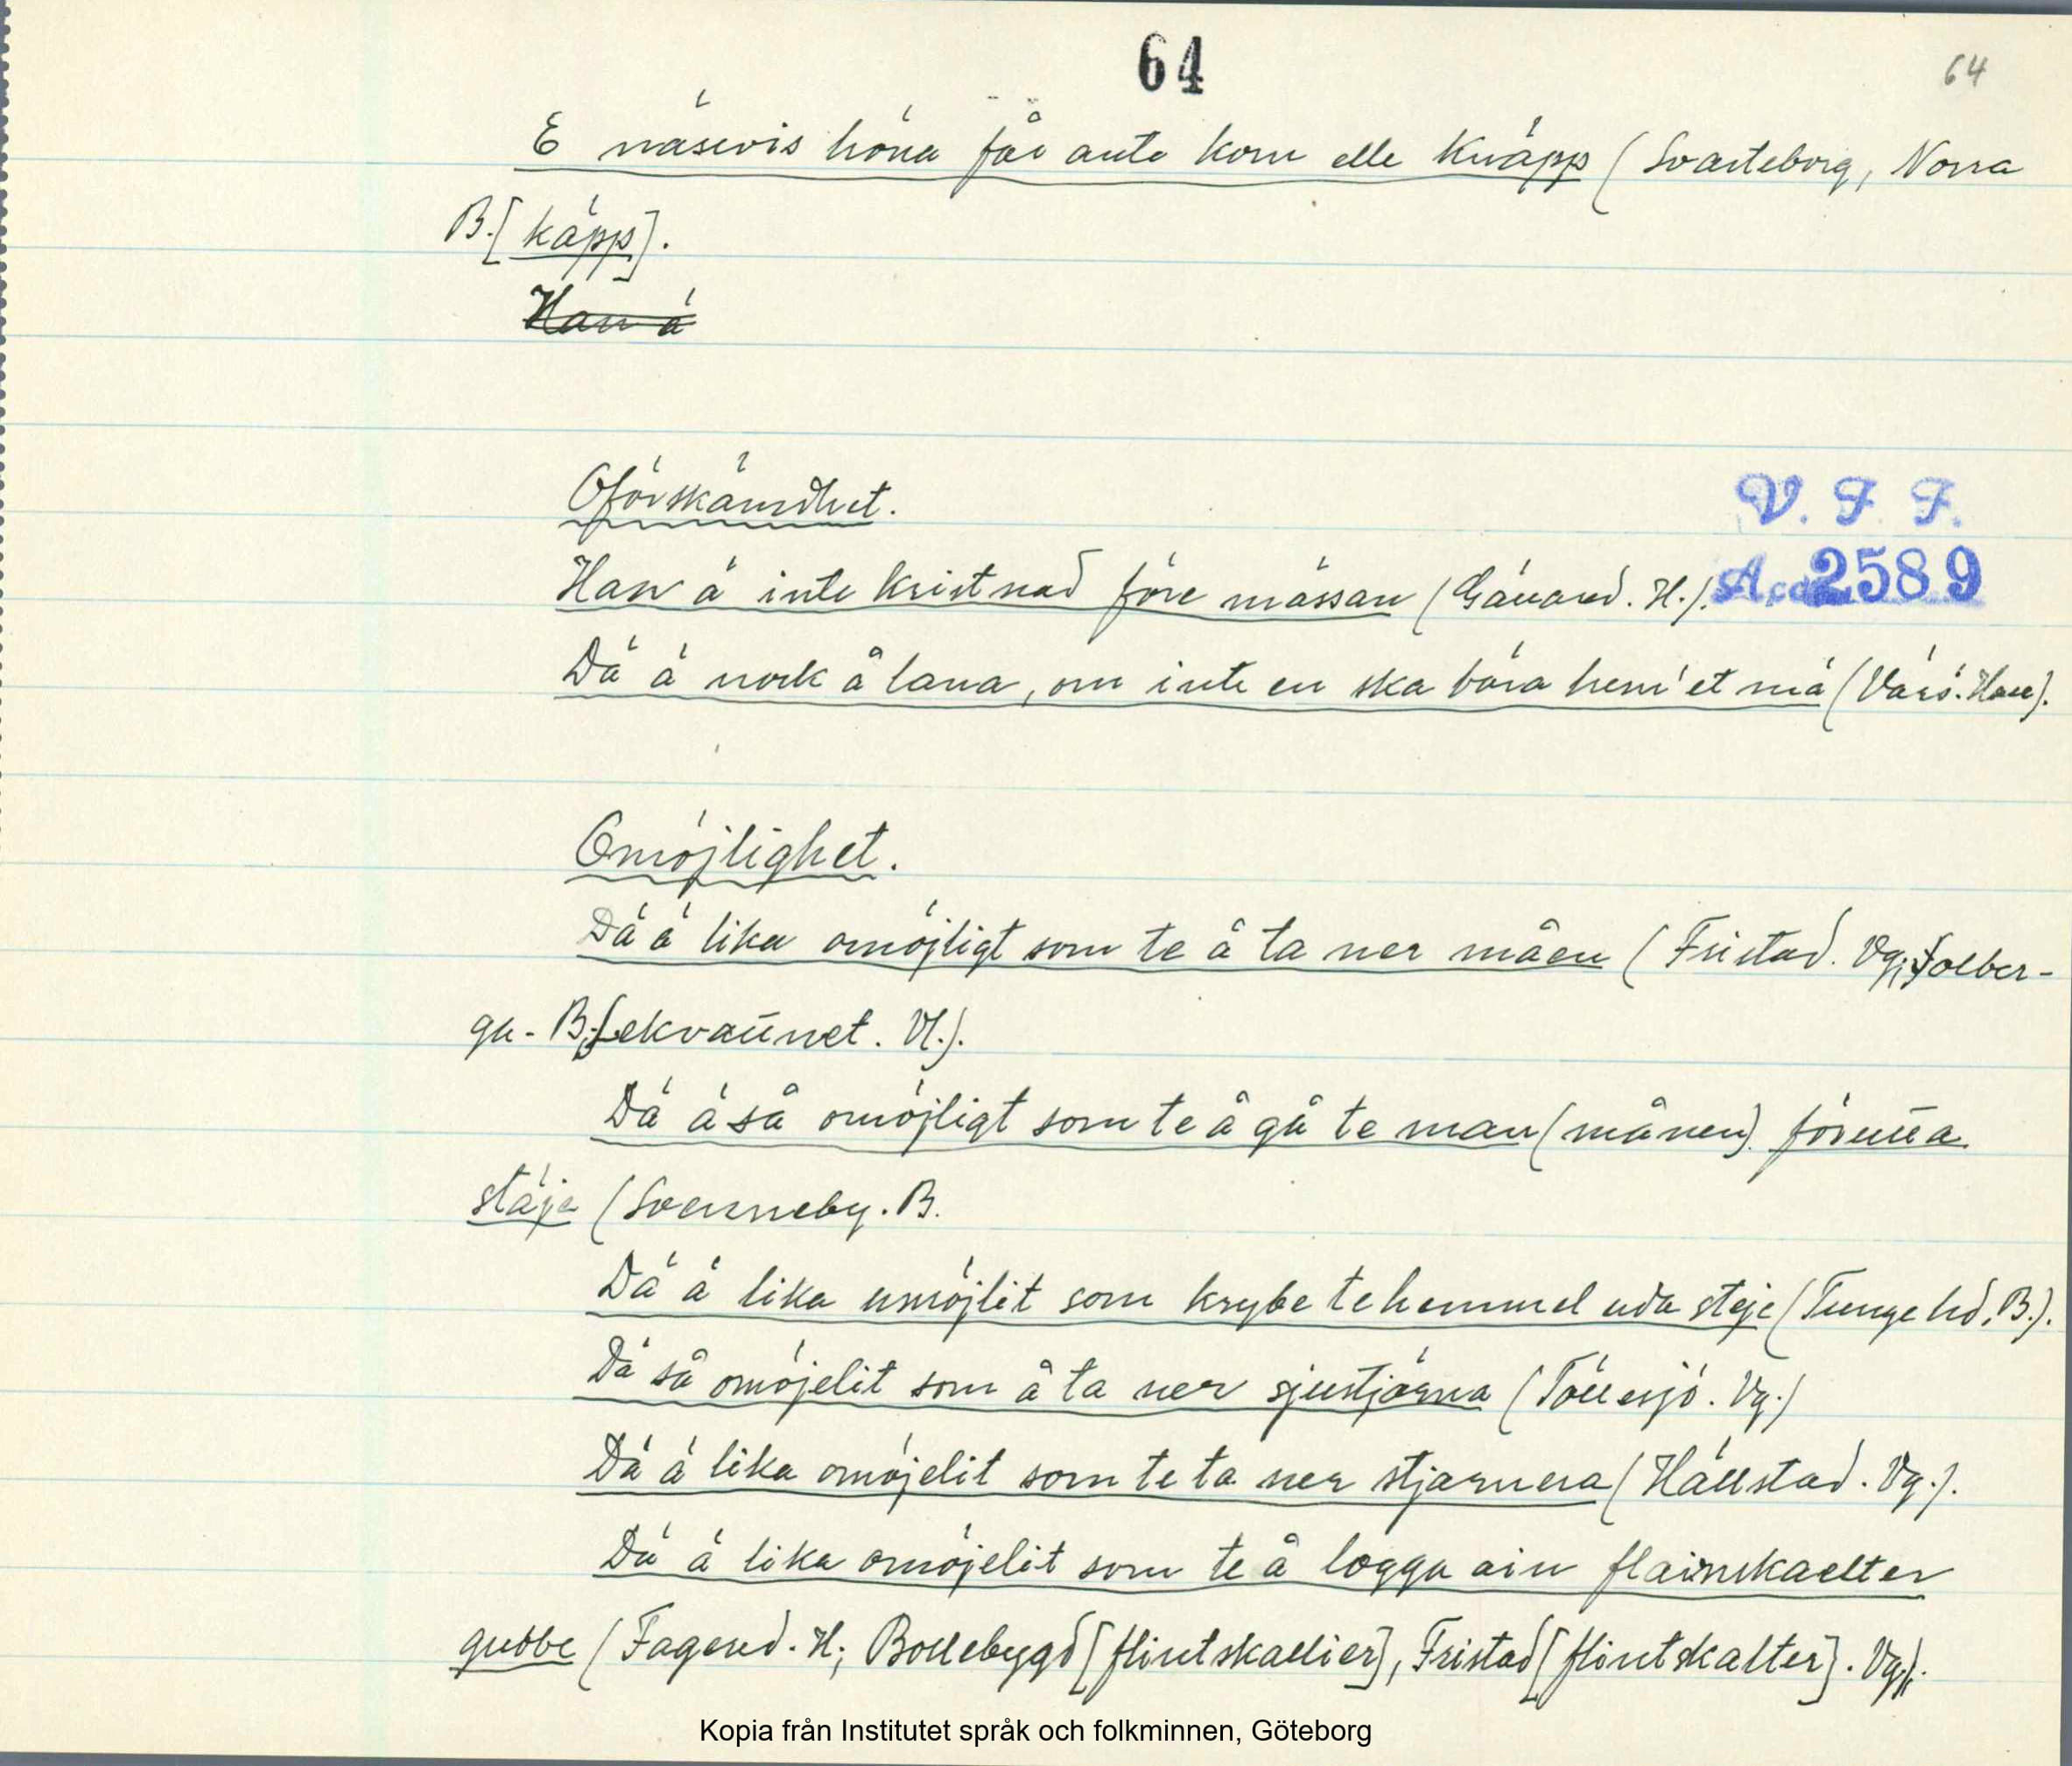 64
64
E näsvis höna får ante korn elle knäpp (Svarteborg, Norra
B. [käpp].
Han ä
Oförskämdhet.
V. F. F.
Han ä inte kristnad före mässan (Gällared. H.).
Acc. 2589
Dä ä nock å lana, om inte en ska bära hem'et mä (Värö. Hall).
Omöjlighet.
Dä ä lika omöjligt som te å ta ner måen (Fristad. Vg; Solber-
ga. B; Lekvattnet. Vl.).
Dä ä så omöjligt som te å gå te man (månen) förutta
stäje (Svenneby. B.
Dä ä lika umöjlit som krybe te hemmel uda steje (Tunge hd, B.).
Dä så omöjelit som å ta ner sjustjärna (Töllesjö. Vg.)
Dä ä lika omöjelit som te ta ner stjärnera (Hällstad. Vg.).
Dä ä lika omöjelit som te å logga ain flainskaelter
gubbe (Fagered. H; Bollebygd [flintskallier], Fristad [flintskalter]. Vg).
Kopia från Institutet språk och folkminnen, Göteborg